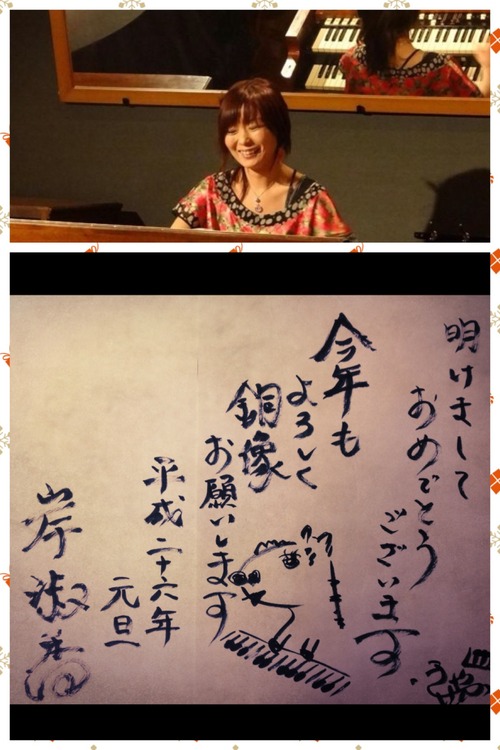 明けまして
おめでとう
ございます
今年も
よろしく
銅像
お願いします
平成二十六年
元旦
岸淑香